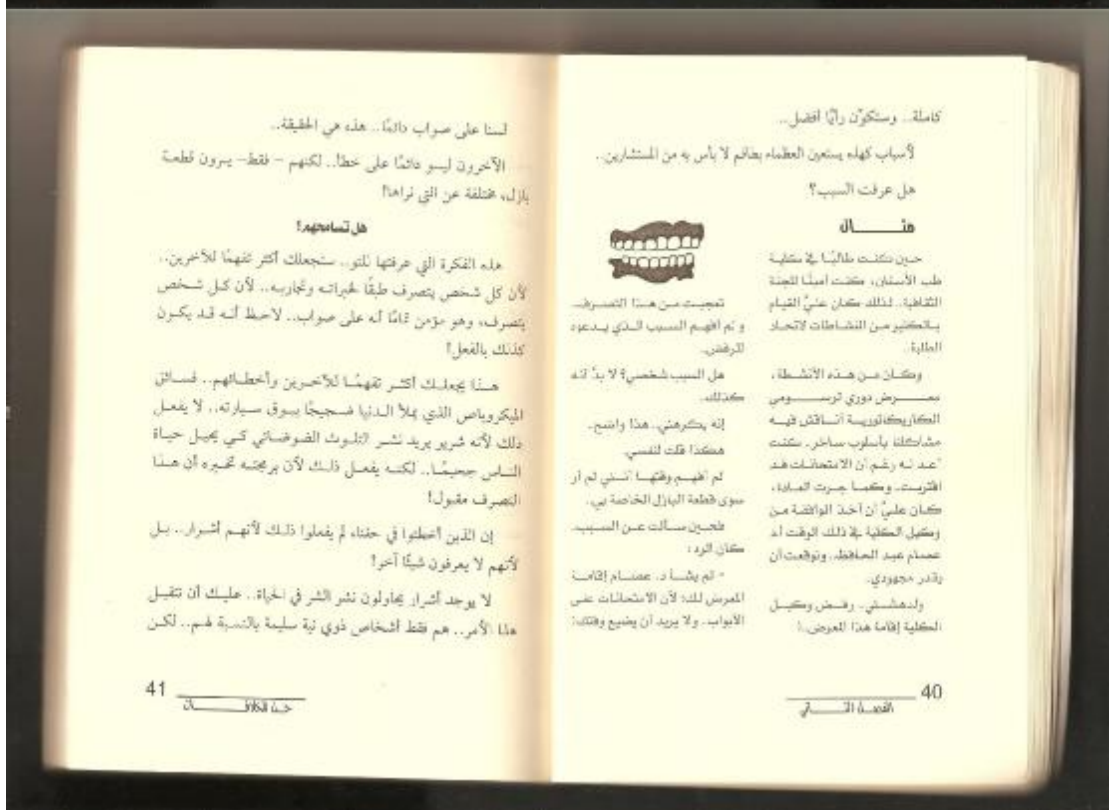 كاملة.. وستكوّن رأيًا أفضل..
لأسباب كهذه يستعين العظماء بطاقم لا بأس به من المستشارين..
هل عرفت السبب؟
مثــــــال
حين كنت طالبًا في كلية
طب الأسنان، كنت أمينًا للجنة
الثقافية. لذلك كان عليَّ القيام
بالكثير من النشاطات لاتحاد
الطلبة.
وكان من هذه الأنشطة،
معــــرض دوري لرســـومي
الكاريكاتورية أناقش فيه
مشاكلنا بأسلوب ساخر. كنت
أعد له رغم أن الامتحانات قد
اقتربت. وكما جرت العادة،
كان عليَّ أن آخذ الموافقة من
وكيل الكلية في ذلك الوقت أ.د
عصام عبد الحافظ. وتوقعت أن
يقدر مجهودي.
ولدهشتي.. رفض وكيل
الكلية إقامة هذا المعرض..!
تعجبت من هذا التصرف..
و لم أفهم السبب الذي يدعوه
للرفض.
هل السبب شخصي؟ لا بدَّ أنه
كذلك.
إنه يكرهني.. هذا واضح.
هكذا قلت لنفسي.
لم أفهم وقتها أنني لم أر
سوى قطعة البازل الخاصة بي.
فحين سألت عن السبب،
كان الرد:
- لم يشأ د. عصام إقامة
المعرض لك؛ لأن الامتحانات على
الأبواب. ولا يريد أن يضيع وقتك!
40
الفصل الثـــــاني
لسنا على صواب دائمًا.. هذه هي الحقيقة..
الآخرون ليسو دائمًا على خطأ.. لكنهم – فقط– يرون قطعة
بازل، مختلفة عن التي نراها!
هل تسامحهم؟
هذه الفكرة التي عرفتها للتو.. ستجعلك أكثر تفهمًا للآخرين..
لأن كل شخص يتصرف طبقًا لخبراته وتجاربه.. لأن كل شخص
يتصرف، وهو مؤمن تمامًا أنه على صواب.. لاحظ أنه قد يكون
كذلك بالفعل!
هــذا يجعلك أكثر تفهمًا للآخرين وأخطائهم.. فسائق
الميكروباص الذي يملأ الدنيا ضجيجًا ببوق سيارته.. لا يفعل
ذلك لأنه شرير يريد نشر التلوث الضوضائي كي يحيل حياة
الناس جحيمًا.. لكنه يفعل ذلك لأن برمجته تخبره أن هذا
التصرف مقبول!
إن الذين أخطئوا في حقنا، لم يفعلوا ذلك لأنهم أشرار.. بل
لأنهم لا يعرفون شيئًا آخر!
لا يوجد أشرار يحاولون نشر الشر في الحياة.. عليك أن تتقبل
هذا الأمر.. هم فقط أشخاص ذوي نية سليمة بالنسبة لهم.. لكن
41